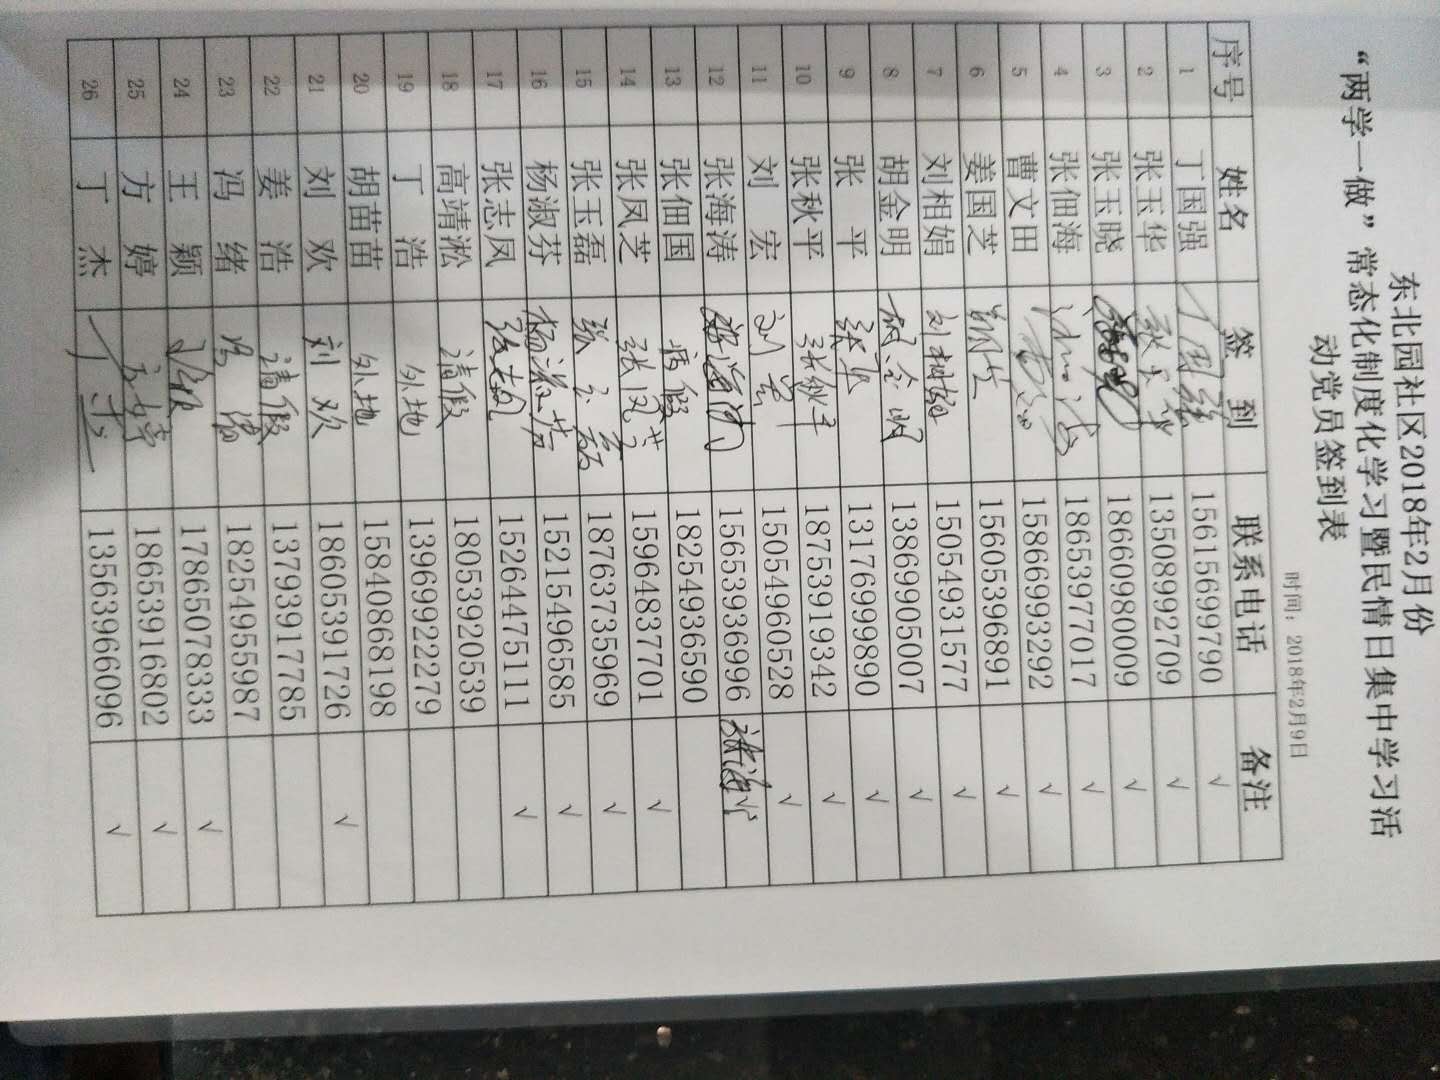 东北园社区2018年2月份
“两学一做”常态化制度化学习暨民情日集中学习活
动党员签到表
时间：2018年2月9日
序号 姓名 签到 联系电话 备注
1 丁国强 丁国强 15615699790 √
2 张玉华 张玉华 13508992709 √
3 张玉晓 18660980009 √
4 张佃海 18653977017 √
5 曹文田 15866993292 √
6 姜国芝 15605396891 √
7 刘相娟 刘相娟 15054931577 √
8 胡金明 胡金明 13869905007 √
9 张平 张平 13176999890 √
10 张秋平 张秋平 18753919342 √
11 刘宏 刘宏 15054960528 √
12 张海涛 15653936996
13 张佃国 病假 18254936590
14 张凤芝 张凤芝 15964837701 √
15 张玉磊 张玉磊 18763735969 √
16 杨淑芬 杨淑芬 15215496585 √
17 张志凤 张志凤 15264475111 √
18 高靖淞 请假 18053920539
19 丁浩 外地 13969922279
20 胡苗苗 外地 15840868198
21 刘欢 刘欢 18605391726 √
22 姜浩 请假 13793917785
23 冯绪 18254955987
24 王颖 17865078333 √
25 方婷 方婷 18653916802 √
26 丁杰 丁杰 13563966096 √